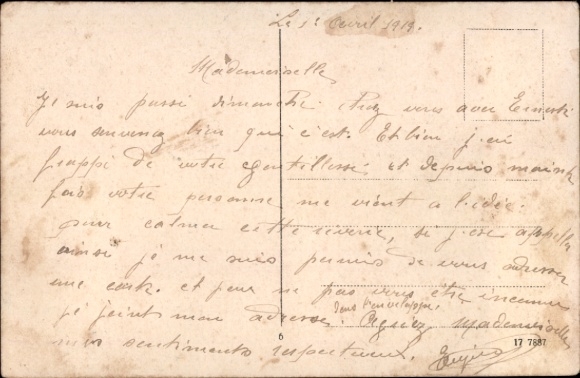 Le 1r Avril 1919.
Mademoiselle
Je suis passé dimanche chez vous avec Ernest
vous souvenez bien qui c'est. Eh bien j'ai
frappé de votre gentillesse et depuis mainte
fois votre personne me vient a l'idée.
pour calmer cette reverie, si j'ose appeller
ainsi je me suis permis de vous adresser
une carte. et pour ne pas vous être inconnu
je joint mon adresse dans l'enveloppe. Mademoiselle
mes sentiments respectueux.
6
17 7887